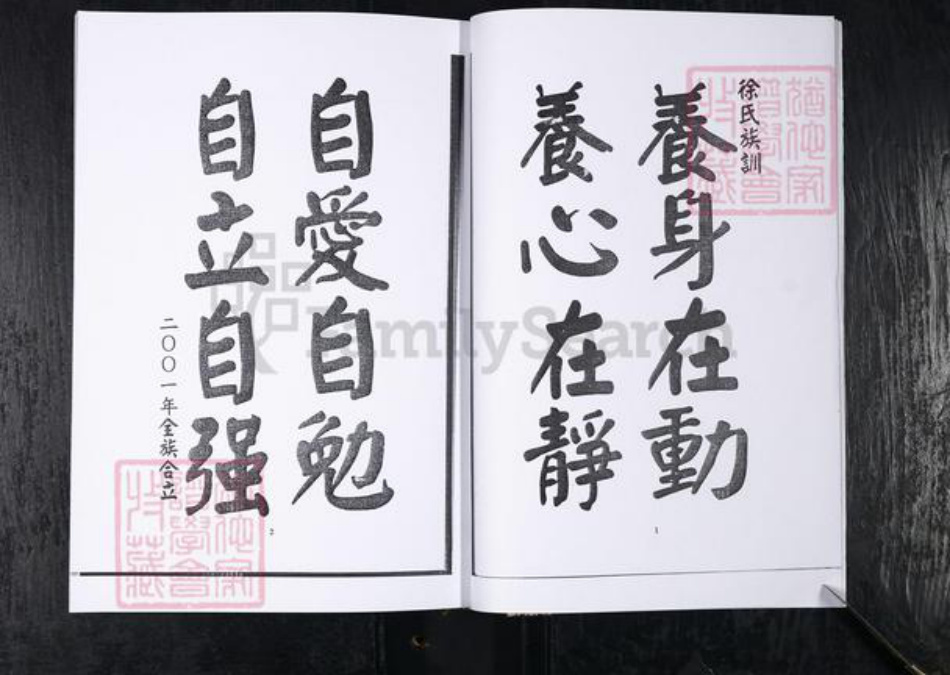 徐氏族訓
養身在動
養心在靜
1
自愛自勉
自立自强
二〇〇一年全族合立
2
FamilySearch